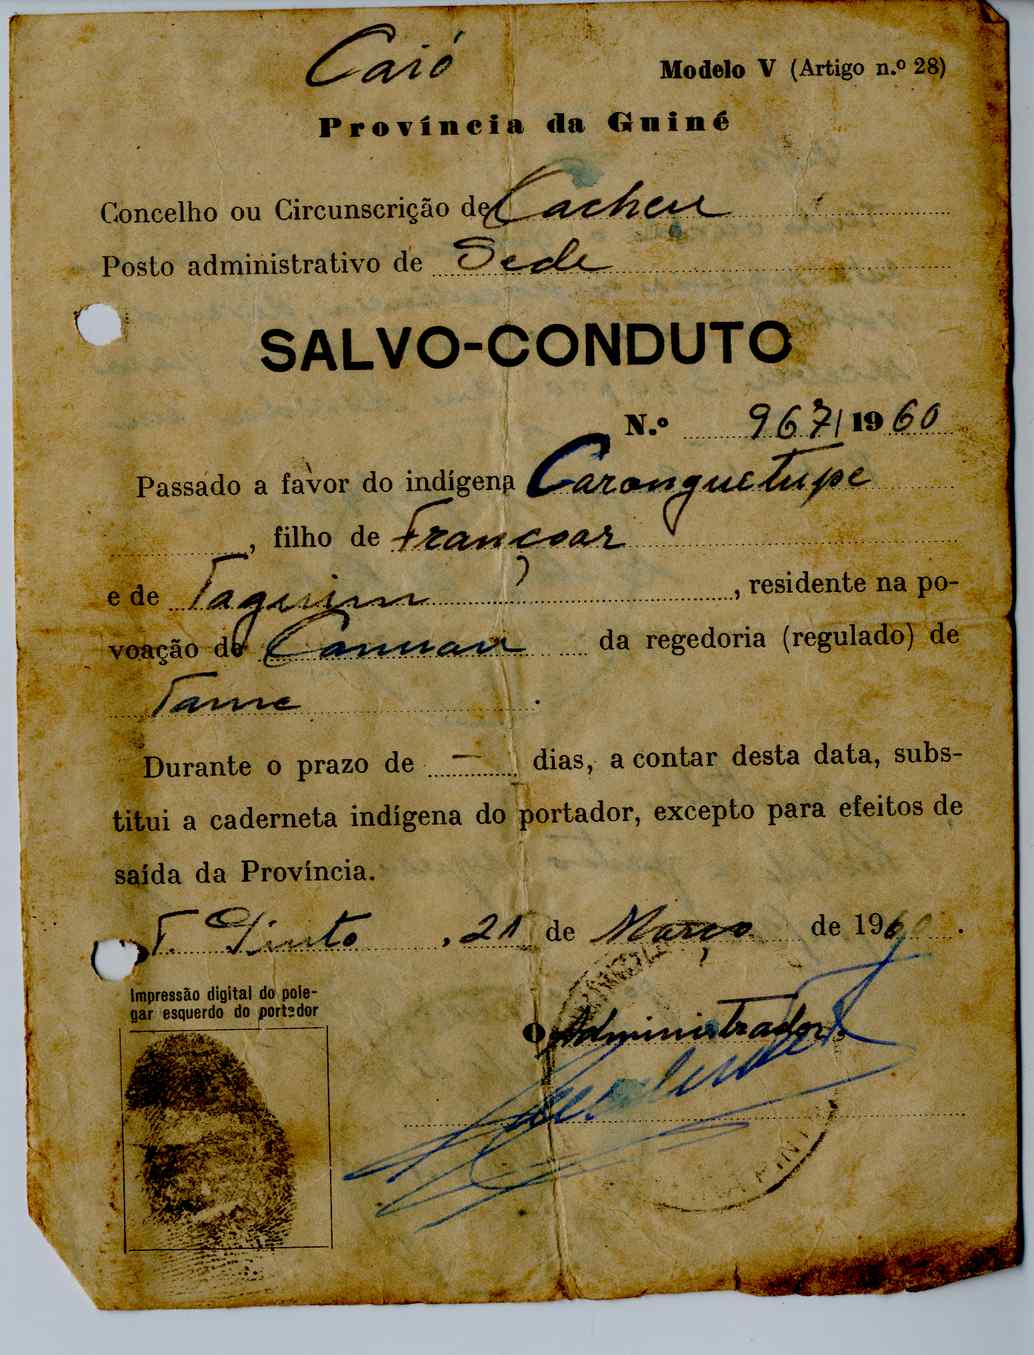 Caió
Modelo V (Artigo n.º 28)
Província da Guiné
Concelho ou Circunscrição de Cacheu
Posto administrativo de Sede
SALVO-CONDUTO
N.º 967/1960
Passado a favor do indígena Caronguetupe
, filho de Françoar
e de Taguim, residente na po-
voação de Canuau da regedoria (regulado) de
Tame.
Durante o prazo de — dias, a contar desta data, subs-
titui a caderneta indígena do portador, excepto para efeitos de
saída da Província.
T. Pinto, 21 de Março de 1960.
Impressão digital do pole-
gar esquerdo do portador
O Administrador